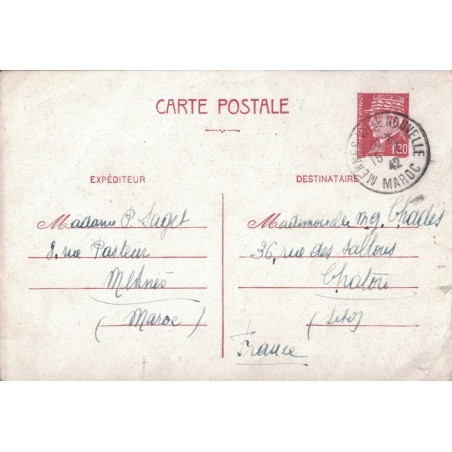 CARTE POSTALE
1,20
MEKNES VILLE NOUVELLE
42
MAROC
EXPÉDITEUR
Madame P. Saget
8, rue Pasteur
Meknès
(Maroc)
DESTINATAIRE
Mademoiselle Mg. Chades
36, rue des
Chatou
France